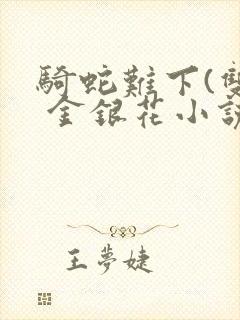 騎蛇難下(雙
金銀花小說
王夢婕